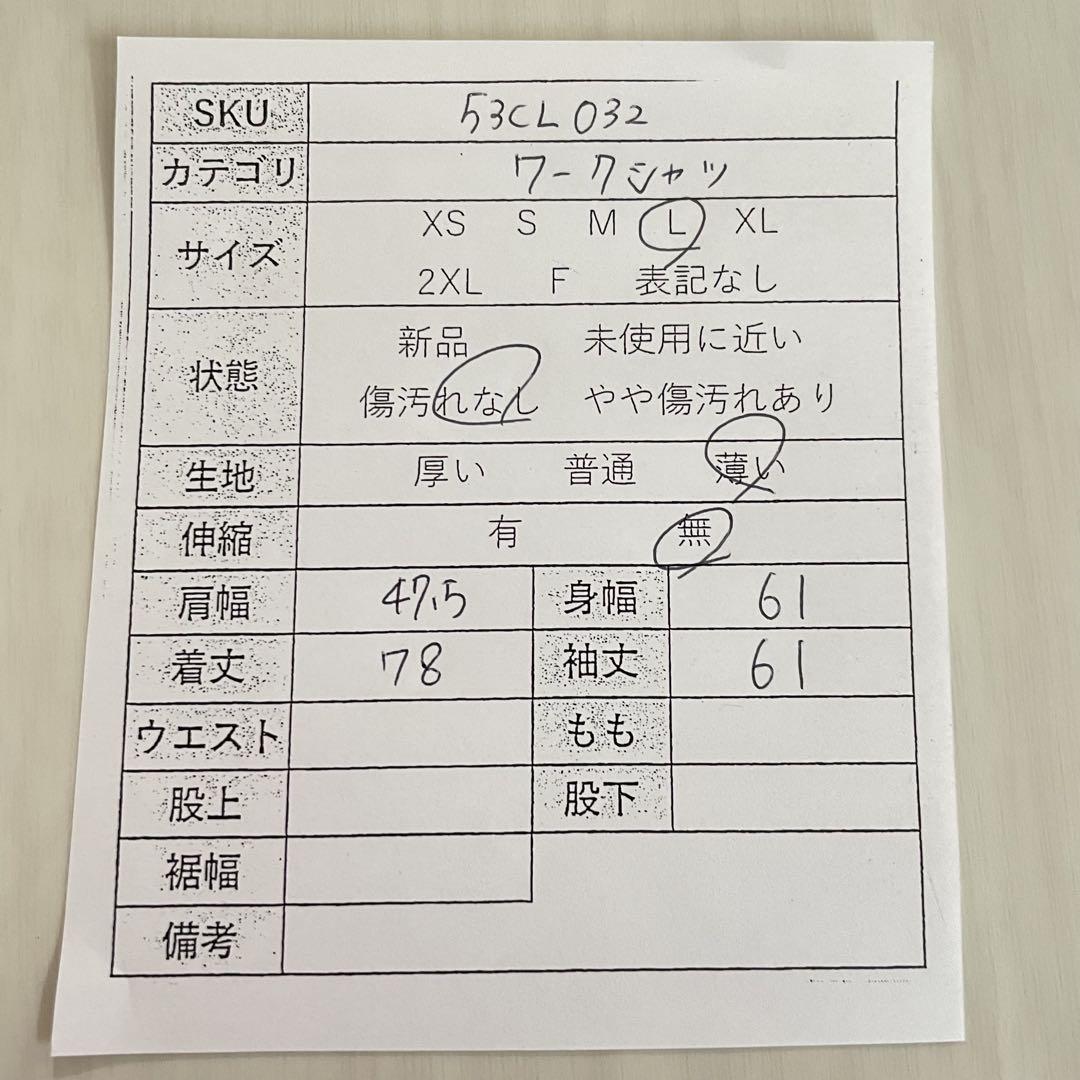 SKU 53CL032
カテゴリ ワークシャツ
サイズ XS S M L XL
2XL F 表記なし
状態 新品 未使用に近い
傷汚れなし やや傷汚れあり
生地 厚い 普通 薄い
伸縮 有 無
肩幅 47.5 身幅 61
着丈 78 袖丈 61
ウエスト もも
股上 股下
裾幅
備考